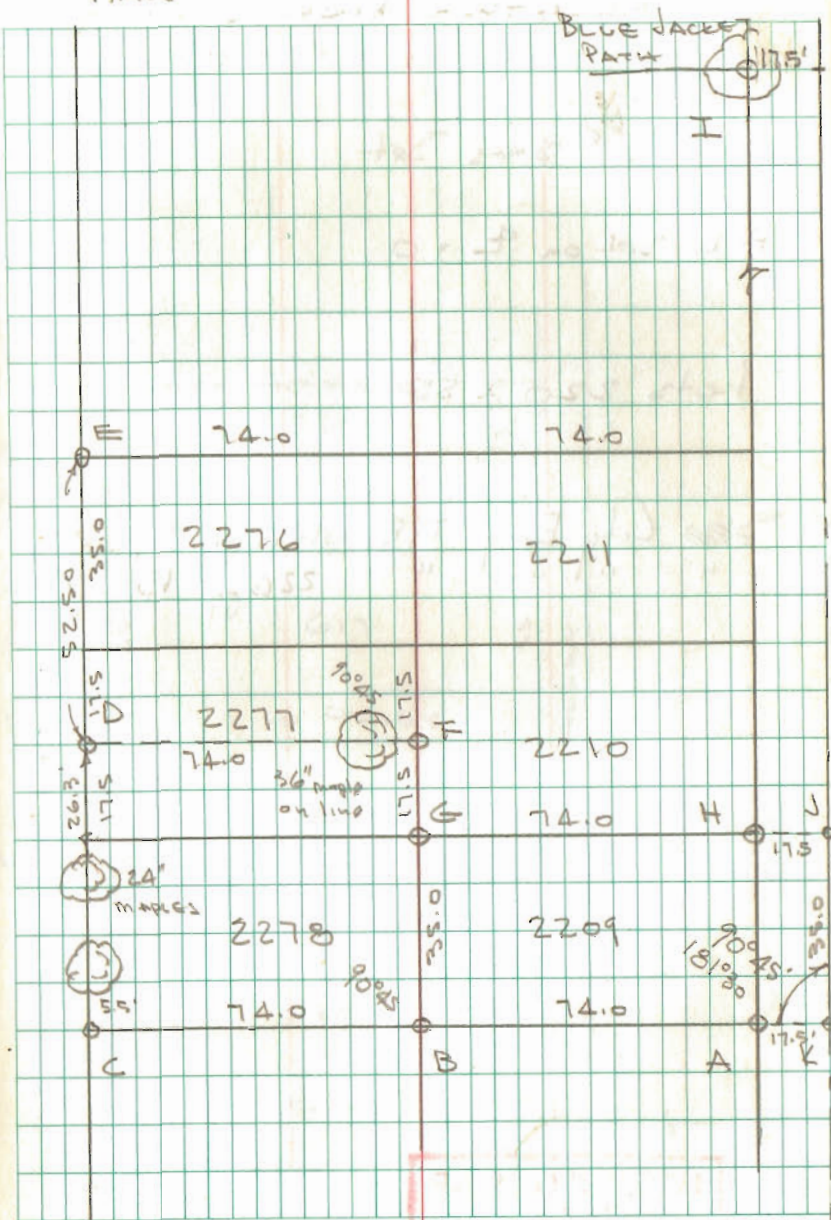 BLUE JACKET
PATH
17.5'
I
E
74.0
74.0
35.0
2276
2211
52.50
17.5
D
2277
90°45
17.5
F
74.0
2210
36" maple
on line
26.3'
17.5
17.5
G
74.0
H
J
17.5
24"
MAPLES
2278
35.0
2209
90°45
181°30
35.0
90°45
5.5'
74.0
74.0
17.5'
C
B
A
K